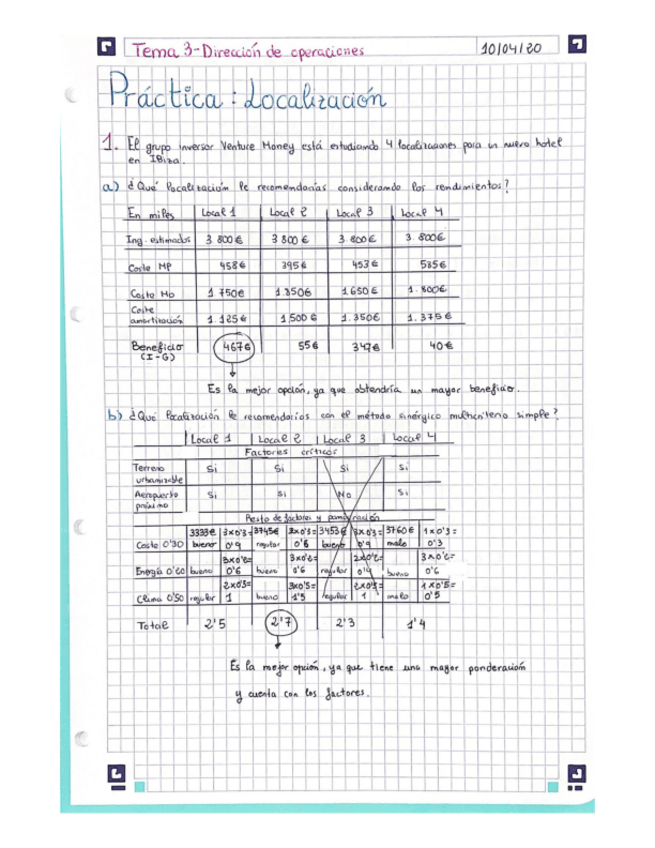 Tema 3-Direccion de operaciones 10/04/20
Práctica: Localización
1. El grupo inversor Venture Money está estudiando 4 localizaciones para un nuevo hotel
en Ibiza.
a) ¿Qué localización le recomendarías considerando los rendimientos?
En miles Local 1 Local 2 Local 3 Local 4
Ing. estimados 3.800€ 3.800€ 3.800€ 3.800€
Coste MP 458€ 395€ 453€ 585€
Costo Mo 1.750€ 1.850€ 1.650€ 1.800€
Coste
amortización 1.125€ 1.500€ 1.350€ 1.375€
Beneficio 467€ 55€ 347€ 40€
(I-G)
Es la mejor opción, ya que obtendría un mayor beneficio.
b) ¿Qué localización le recomendarías con el método sinérgico multicriterio simple?
Local 1 Local 2 Local 3 Local 4
Factores críticos
Terreno Si Si Si Si
urbanizable
Aeropuerto Si Si No Si
próximo
Resto de factores y ponderación
3333€ 3x0'3= 3745€ 2x0'3= 3453€ 3x0'3= 3760€ 1x0'3=
Costo 0'30 bueno 0'9 regular 0'6 bueno 0'9 malo 0'3
3x0'2= 3x0'2= 2x0'2= 3x0'2=
Energía 0'20 bueno 0'6 bueno 0'6 regular 0'4 bueno 0'6
2x0'5= 3x0'5= 2x0'5= 1x0'5=
Clima 0'50 regular 1 bueno 1'5 regular 1 malo 0'5
Total 2'5 2'7 2'3 1'4
Es la mejor opción, ya que tiene una mayor ponderación
y cuenta con los factores.